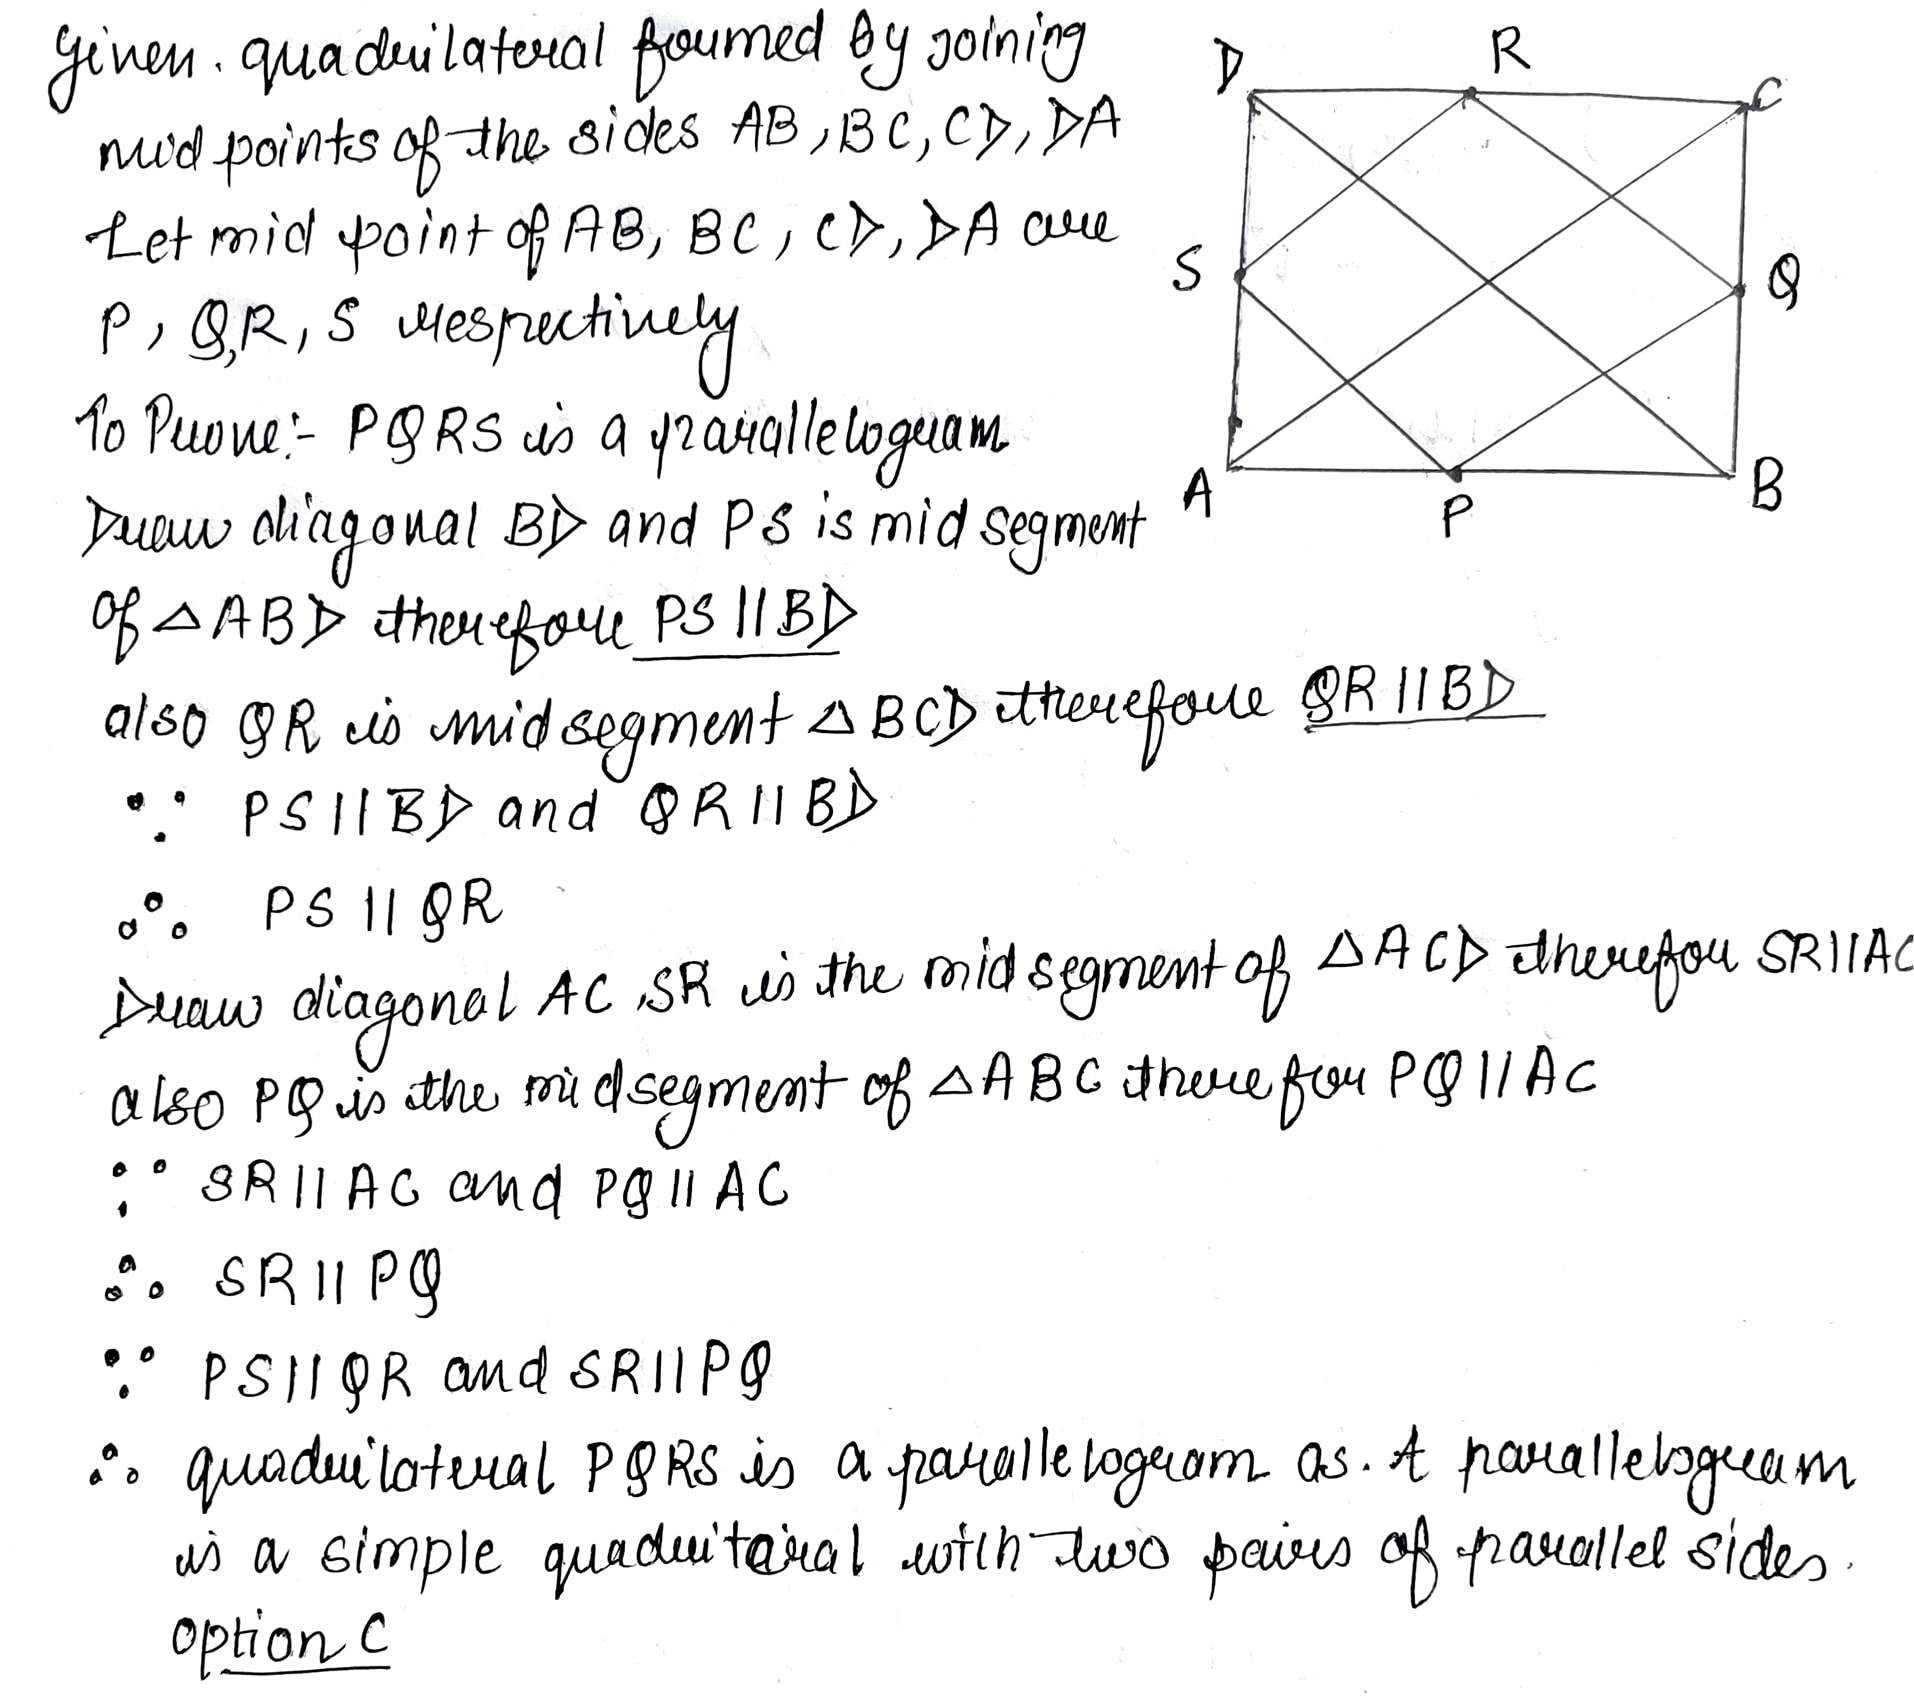 Given. quadrilateral formed by joining
mid points of the sides AB, BC, CD, DA
Let mid point of AB, BC, CD, DA are
P, Q, R, S respectively
To Prove:- PQRS is a parallelogram.
Draw diagonal BD and PS is mid segment
of △ABD therefore PS || BD
also QR is midsegment △BCD therefore QR || BD
∵ PS || BD and QR || BD
∴ PS || QR
Draw diagonal AC, SR is the mid segment of △ACD therefor SR || AC
also PQ is the midsegment of △ABC therefor PQ || AC
∵ SR || AC and PQ || AC
∴ SR || PQ
∵ PS || QR and SR || PQ
∴ quadrilateral PQRS is a parallelogram as. A parallelogram
is a simple quadritairal with two pairs of parallel sides.
option C
D R C
S Q
A P B